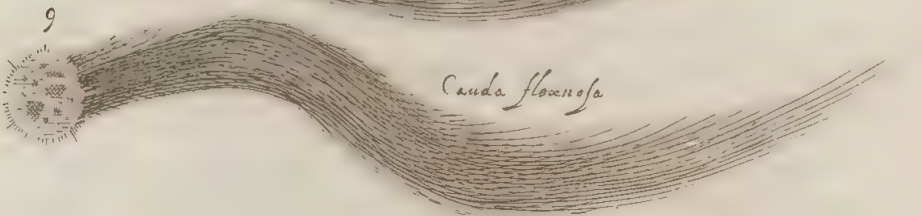 9
Cauda flexuosa